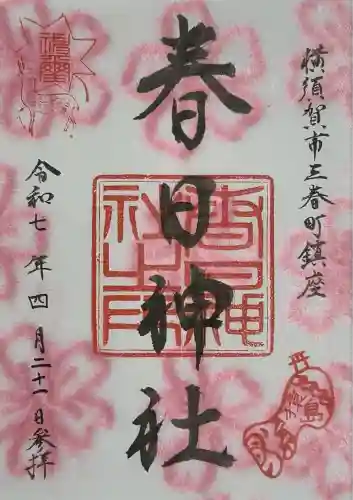 横須賀市三春町鎮座
春日神社
春日神社之印
令和七年四月二十一日参拝